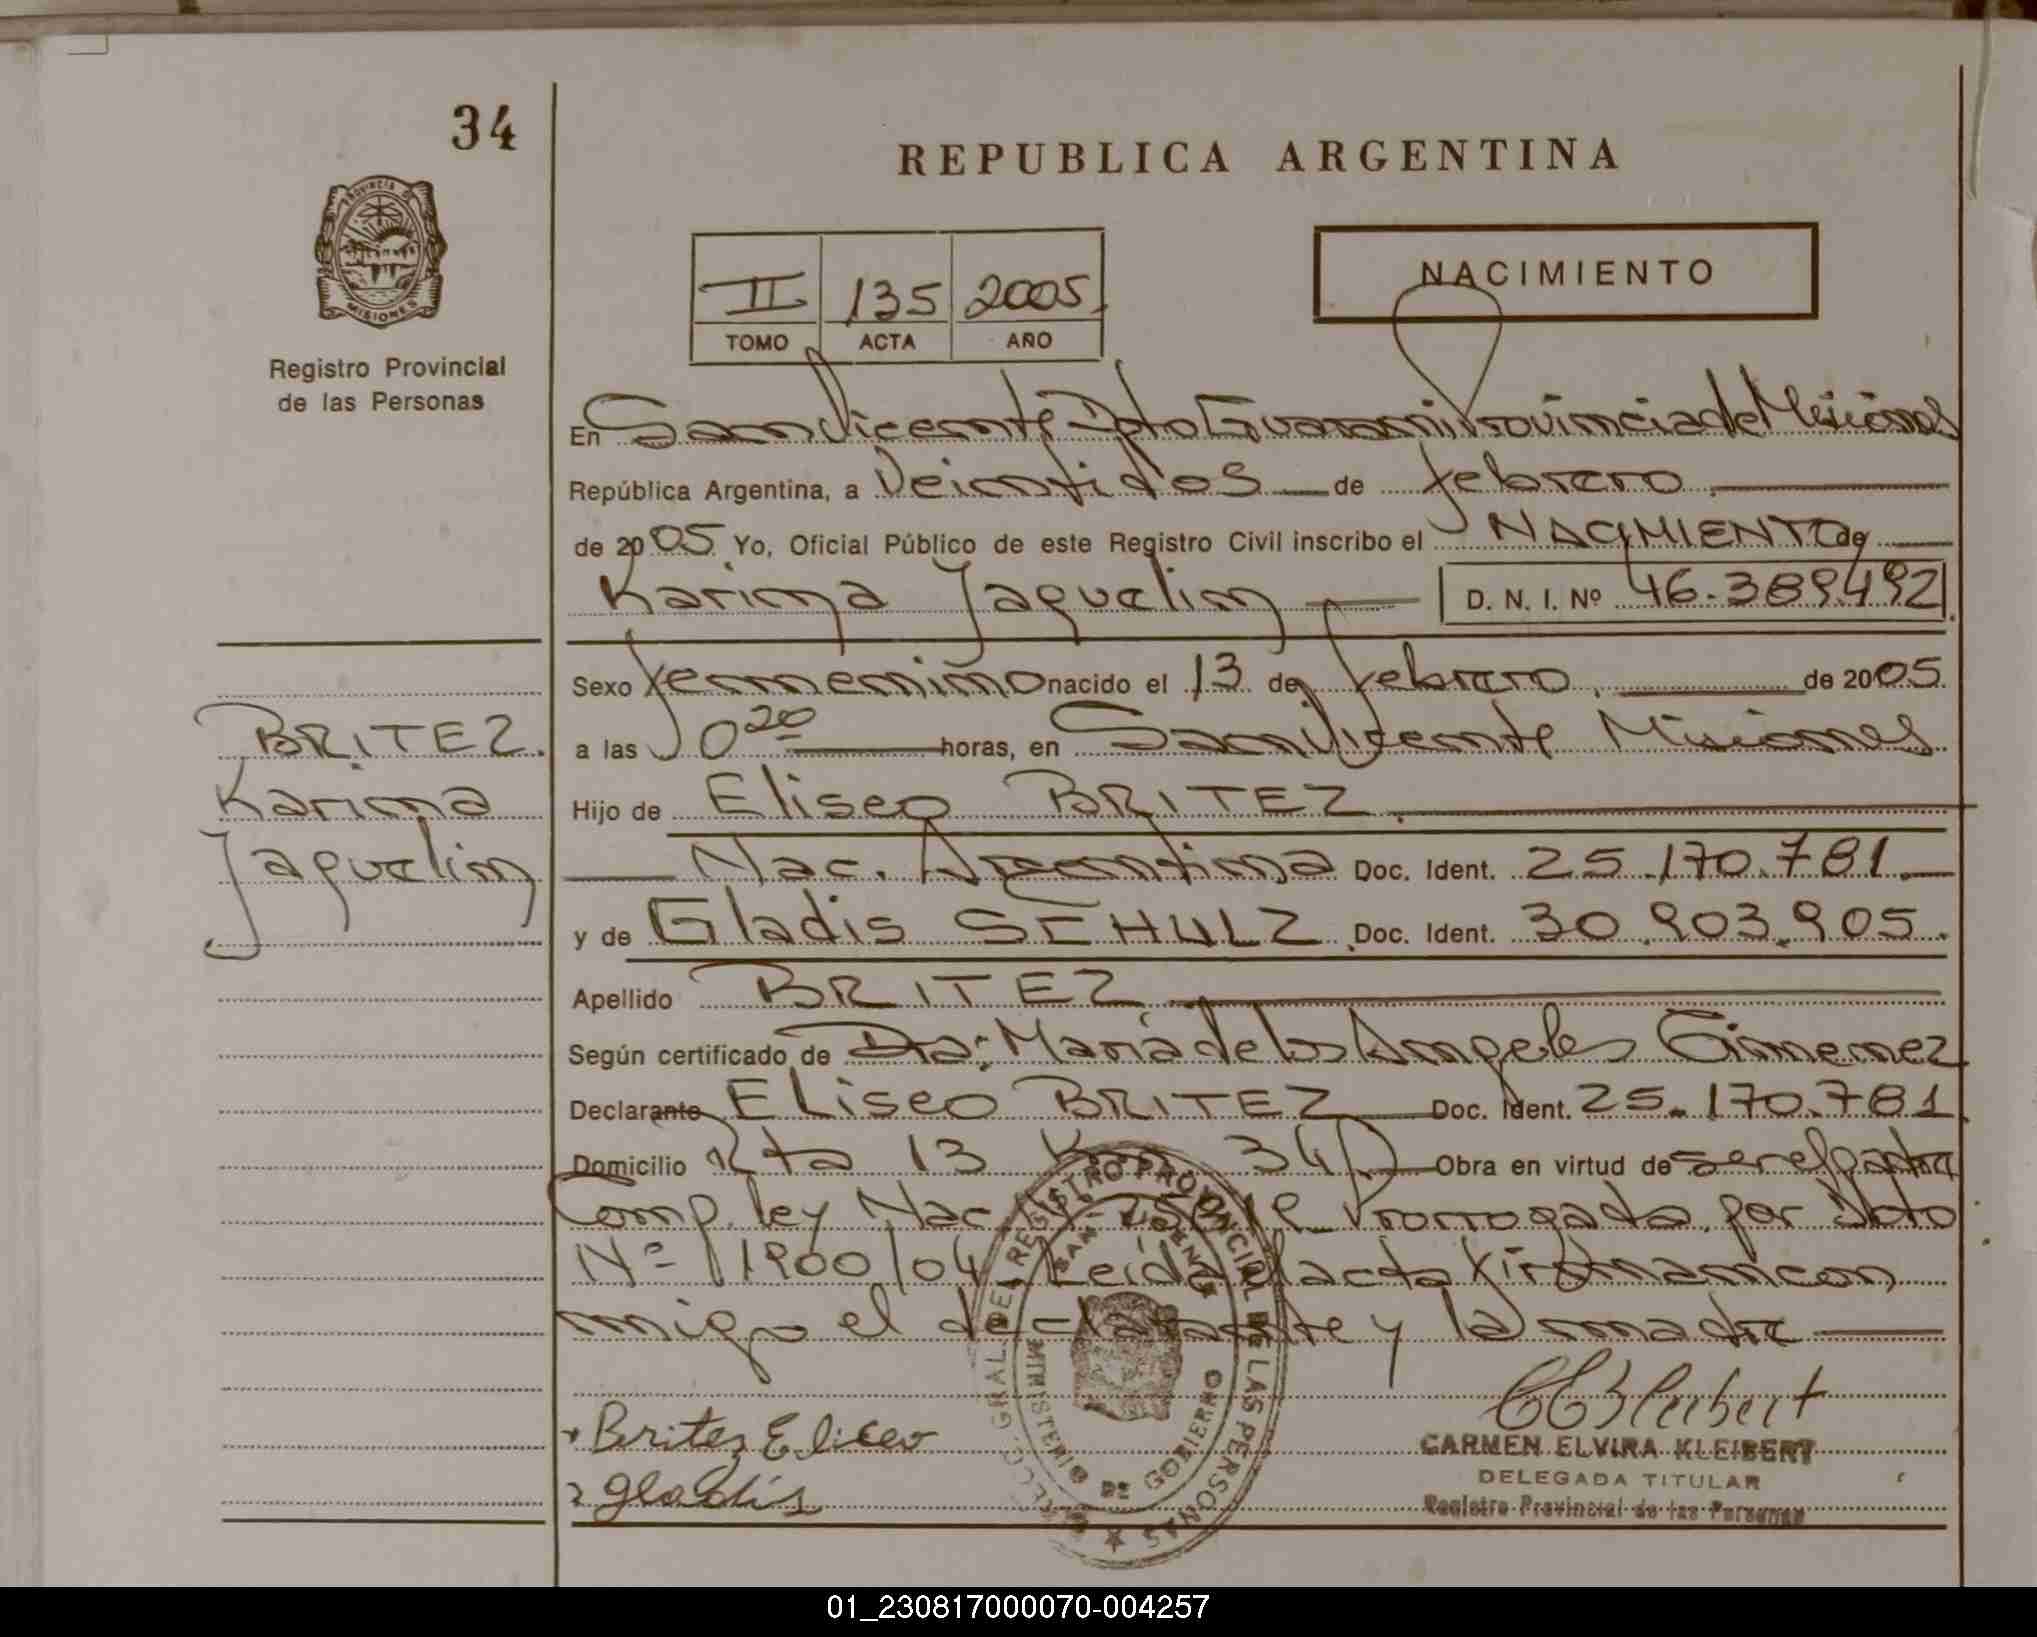 34
REPUBLICA ARGENTINA
PROVINCIA DE
MISIONES
Registro Provincial
de las Personas
II 135 2005
TOMO ACTA AÑO
NACIMIENTO
En San Vicente Dpto Guarani Provincia de Misiones
República Argentina, a Veintidos de febrero
de 2005 Yo, Oficial Público de este Registro Civil inscribo el NACIMIENTO de
Karina Jaquelin D. N. I. Nº 46.389.492
Sexo femenino nacido el 13 de febrero de 2005
BRITEZ
Karina
Jaquelin
a las 0 20 horas, en San Vicente Misiones
Hijo de Eliseo BRITEZ
Nac. Argentina Doc. Ident. 25.170.781
y de Gladis SEHULZ Doc. Ident. 30.903.905
Apellido BRITEZ
Según certificado de Dra: Maria de los Angeles Gimenez
Declarante Eliseo BRITEZ Doc. Ident. 25.170.781
Domicilio Rta 13 Km 34 Obra en virtud de
Comp. ley Nac. Prorrogada por Dpto
Nº 1900/04 Leida el acta firman con
migo el declarante y la madre
Britez Eliceo
Gladis
CARMEN ELVIRA KLEIBERT
DELEGADA TITULAR
Registro Provincial de las Personas
DIRECC. GRAL. DEL REGISTRO PROVINCIAL DE LAS PERSONAS
SAN VICENTE
MINISTERIO DE GOBIERNO
01_230817000070-004257